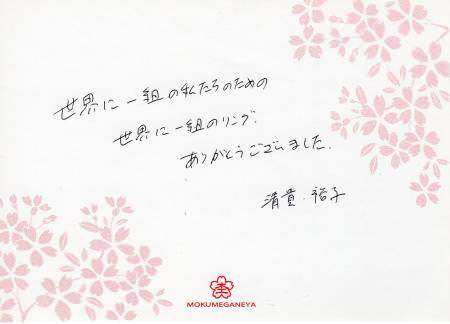 世界に一組の私たちのための
世界に一組のリング。
ありがとうございました。
清貴・裕子
MOKUMEGANEYA